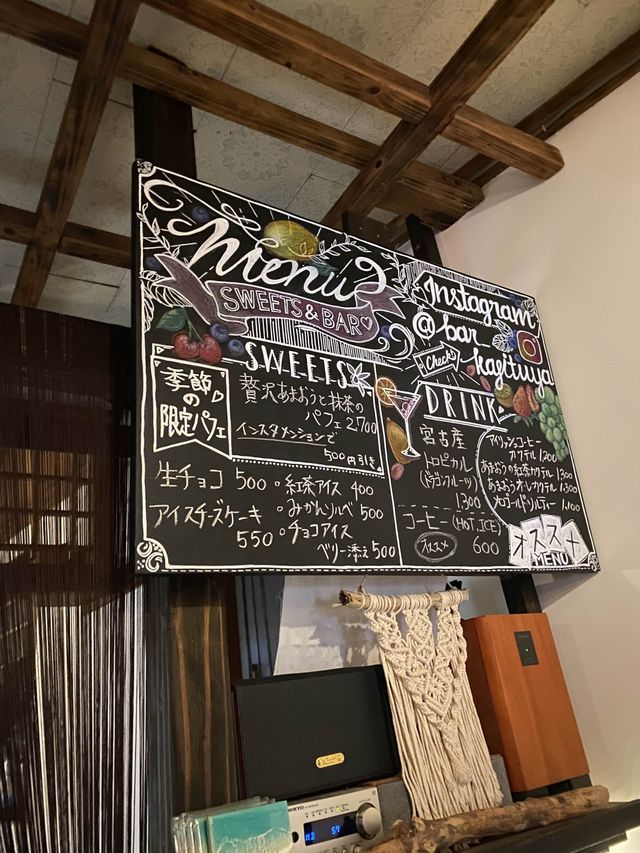 Menu
SWEETS & BAR
Instagram
@bar
Check
kagituya
SWEETS
季節
の
限定パフェ
贅沢あまおうと抹茶の
パフェ 2,700
インスタメンションで
500円引き
生チョコ 500
アイスチーズケーキ
550
紅茶アイス 400
みかんソルベ 500
チョコアイス
ベリー添え 500
DRINK
宮古産
トロピカル
(ドラゴンフルーツ)
1300
コーヒー (HOT, ICE)
オススメ 600
アイリッシュコーヒー
カクテル 1,200
あまおうの紅茶カクテル 1,300
あまおうオレカクテル 1,300
1,100
オススメ
MENU
ONKYO